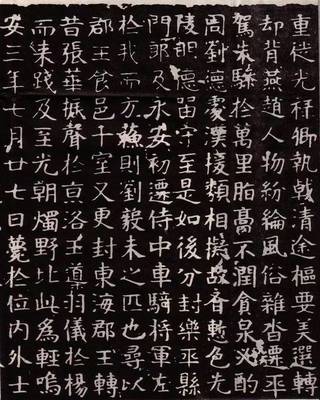 重從光祿卿執戟清途樞要美選轉
却背燕趙人物紛綸風俗雜沓平
駕朱驂於萬里脂膏不潤貪泉必酌
周劉德憂漢援類相擬故音慙色先
陵朗德留守至是如後分封樂平縣
門郎及永安初遷侍中車騎將軍左
於我而方蘓則劉毅未之匹也尋以
郡王食邑千室又更封東海郡王轉
昔張華振聲於京洛王導羽儀於楊
而來踐及至光朝燭野比此為輕嗚
安三年七月廿七日薨於位內外士